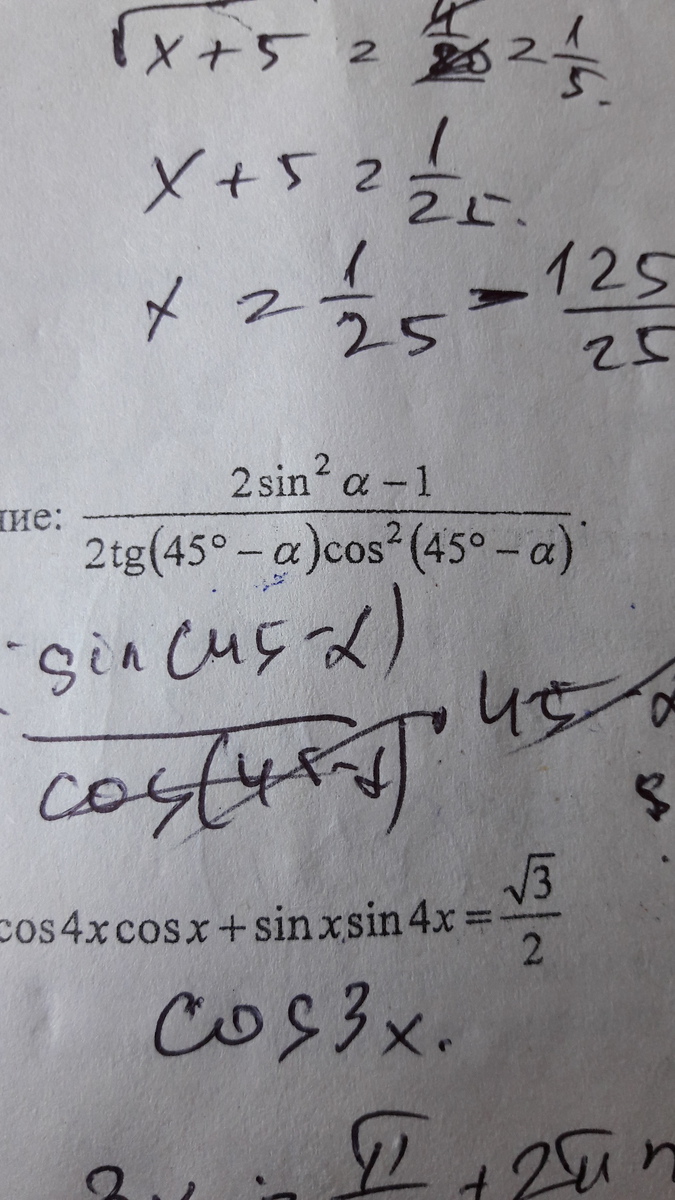 √x+5 = 4/20 = 1/5.
x + 5 = 1/25.
x = 1/25 - 125/25
ние: (2sin² α − 1)/(2tg(45° − α)cos²(45° − α)).
sin(45-α)/cos(45-α) · 45-α
cos4xcosx + sinxsin4x = √3/2
cos3x.
3x = π + 2πn